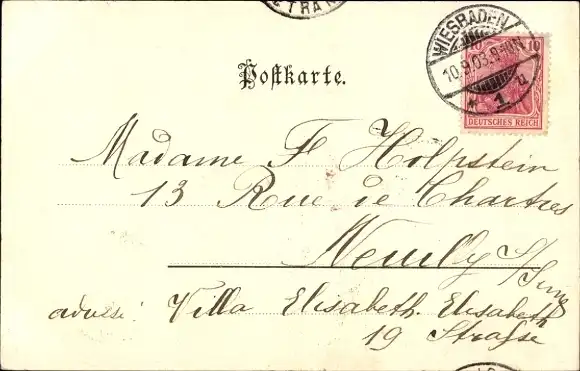 ETRAN
WIESBADEN
10.9.03.9-10N.
* 1 u
10 10
DEUTSCHES REICH
Postkarte.
Madame F Holpstein
13 Rue de Chartres
Neuilly s/Seine
adresse: Villa Elisabeth. Elisabeth
19 Strasse